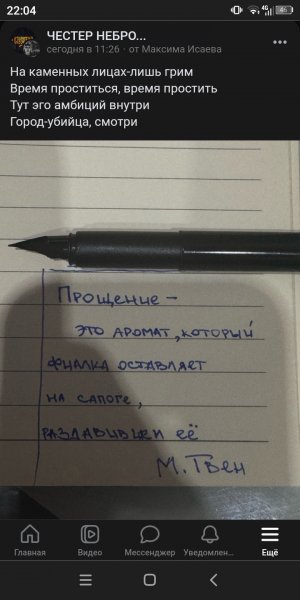 22:04
4G
46
ЧЕСТЕР НЕБРО...
сегодня в 11:26 · от Максима Исаева
На каменных лицах-лишь грим
Время проститься, время простить
Тут эго амбиций внутри
Город-убийца, смотри
Прощение –
это аромат, который
фиалка оставляет
на сапоге,
раздавившем её
М. Твен
Главная
Видео
Мессенджер
Уведомлен...
Ещё